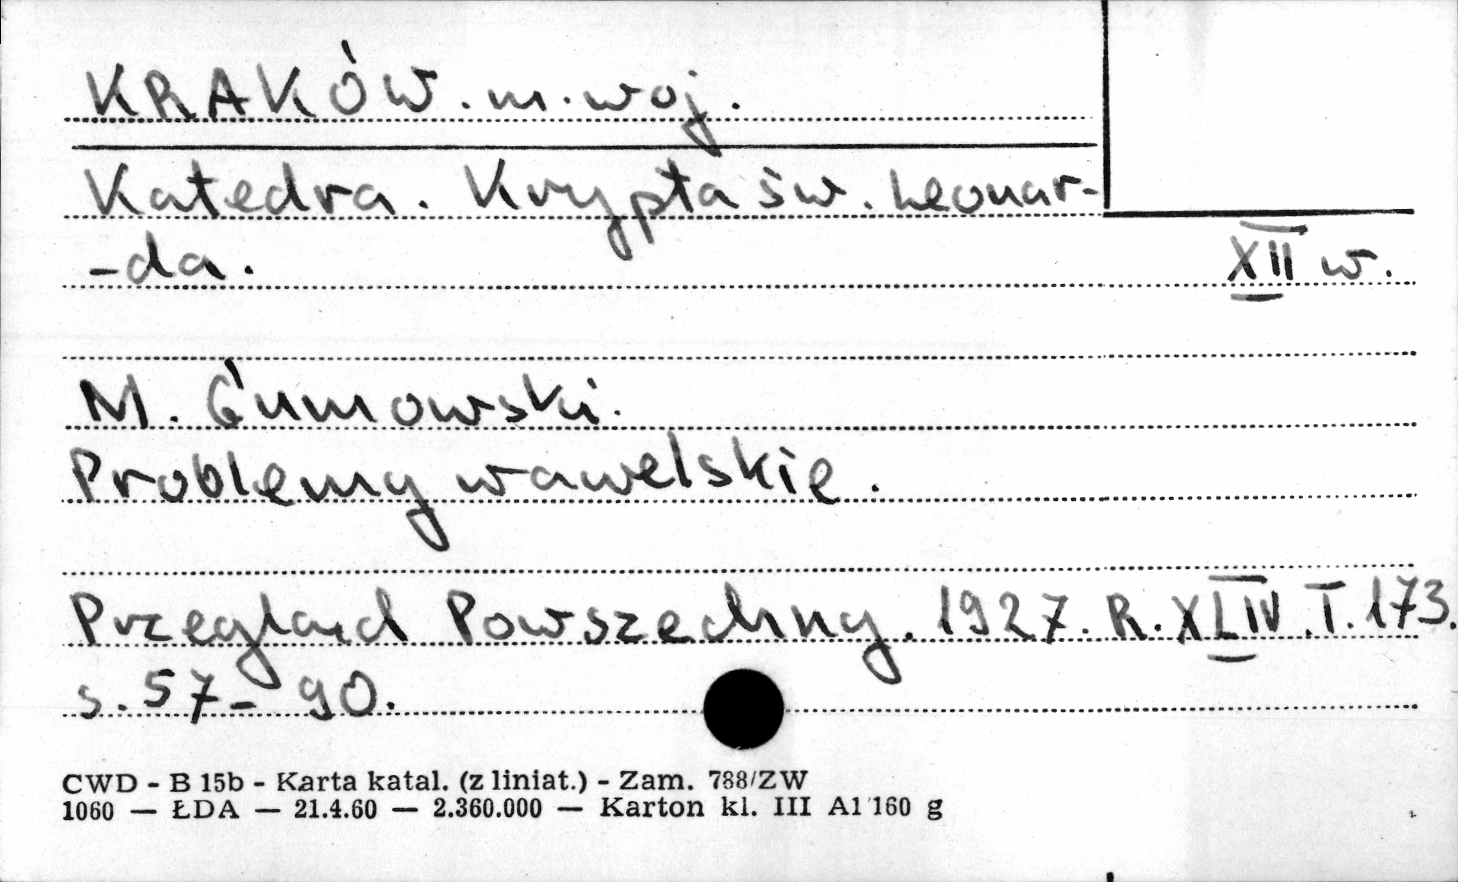 KRAKÓW. m. woj.
Katedra. Krypta św. Leonar-
-da.
XII w.
M. Gumowski.
Problemy wawelskie.
Przegląd Powszechny. 1927. R. XLIV. T. 173.
s. 57-90.
CWD - B 15b - Karta katal. (z liniat.) - Zam. 788/ZW
1060 — ŁDA — 21.4.60 — 2.360.000 — Karton kl. III A1 160 g